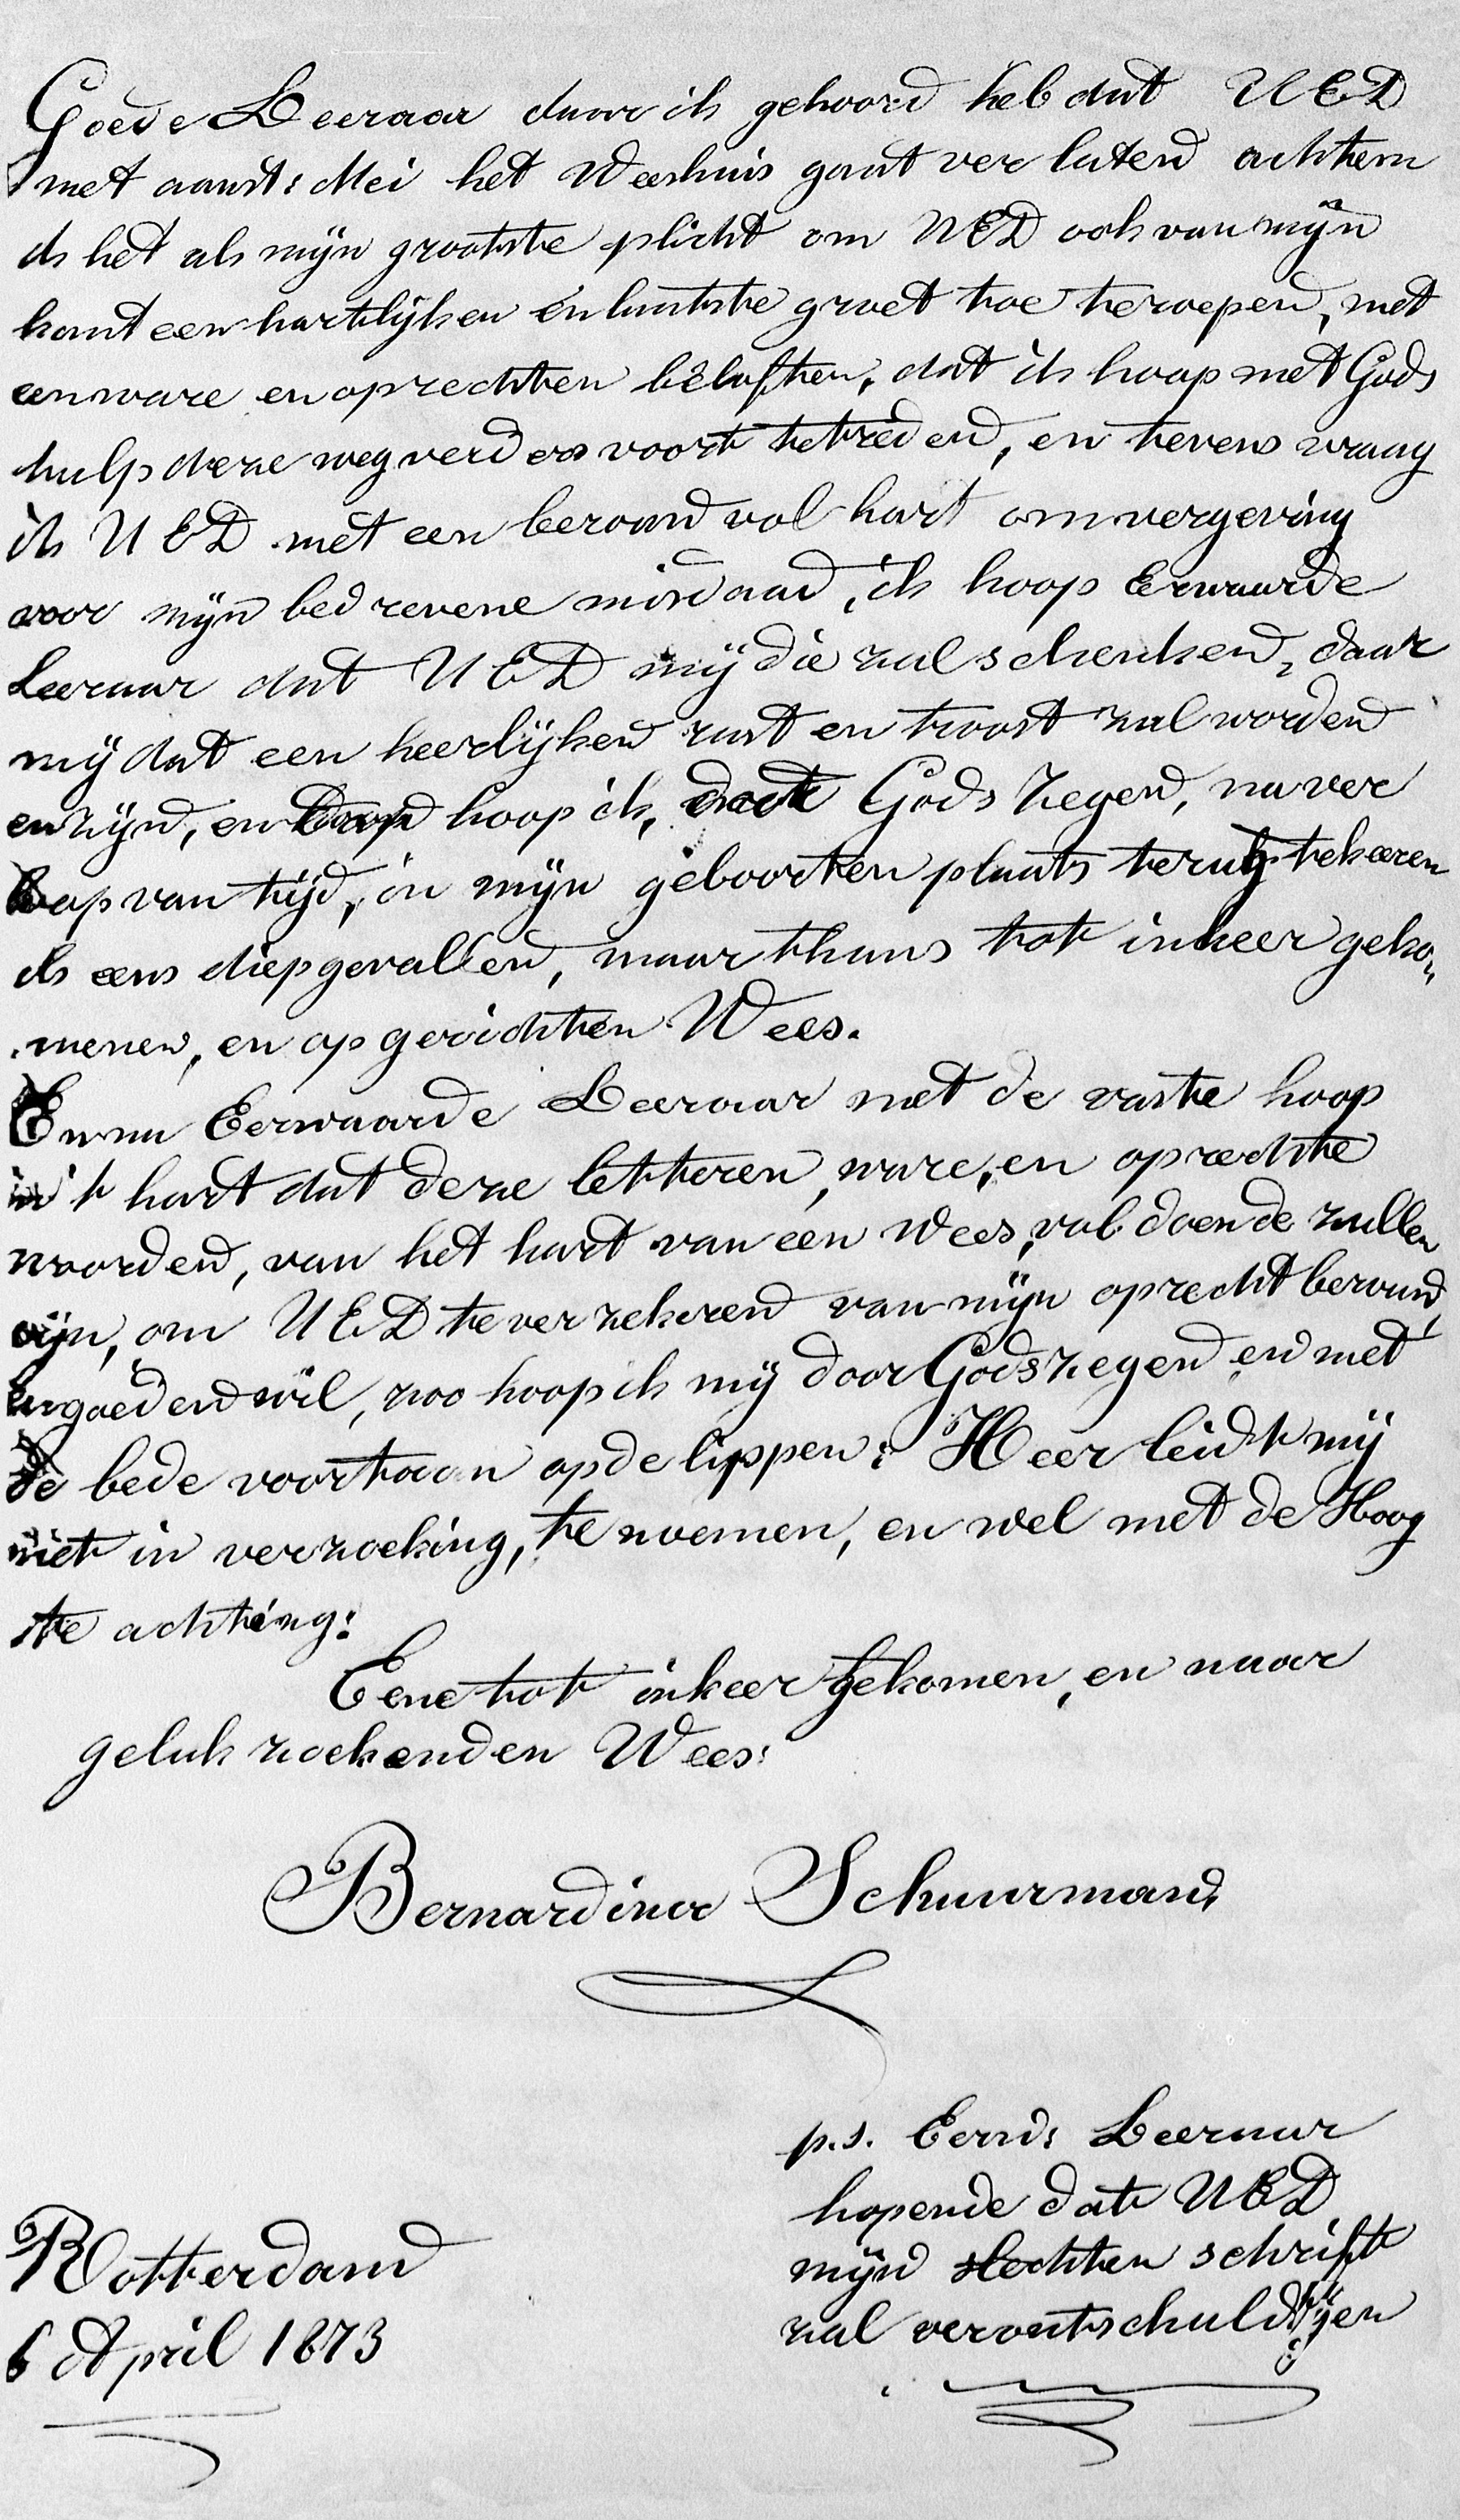 Goede Leeraar daar ik gehoord heb dat UED
met aanst: Mei het Weeshuis gaat ver laten achtem
ik het als mijn grootste plicht om UED ook van mijn
kant een hartelijken en laatste groet toe te roepen, met
een ware en oprechten beloften, dat ik hoop met Gods
hulp deze weg verders voort te treden, en tevens vraag
ik UED met een berouw vol hart om vergeving
voor mijn bedrevene misdaad, ik hoop Eerwaarde
Leeraar dat UED mij die zal schenken, daar
mij dat een heerlijken rust en troost zal worden
en zijn, en hoop ik, Gods Zegen, na ver
loop van tijd, in mijn geboorten plaats terug te keeren
als eens diepgevallen, maar thans tot inkeer geko„
menen, en op gerichten Wees.
En nu Eerwaarde Leeraar met de vaste hoop
in 't hart dat deze letteren, ware, en oprechte
woorden, van het hart van een Wees, vol doende zullen
zijn, om UED te ver zekeren van mijn oprecht berouw,
en goeden wil, zoo hoop ik mij door Gods zegen en met
de bede voortaan op de lippen: Heer leidt mij
niet in verzoeking, te noemen, en wel met de Hoog
ste achting:
Eene tot inkeer gekomen, en naar
geluk zoekenden Wees:
Bernardina Schuurman,
p.s. Eerw: Leeraar
hopende dat UED
mijn slechten schrift
zal verontschuldigen
Rotterdam
6 April 1873